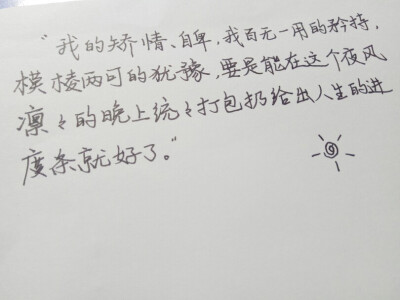 “我的矫情、自卑，我百无一用的矜持，
模棱两可的犹豫，要是能在这个夜风
凛々的晚上统々打包扔给出人生的进
度条就好了。”